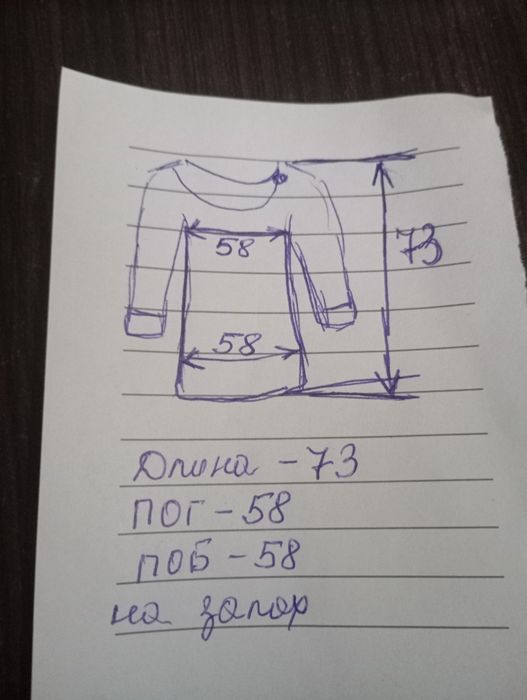 58
73
58
Длина - 73
ПОГ - 58
ПОБ - 58
на запор